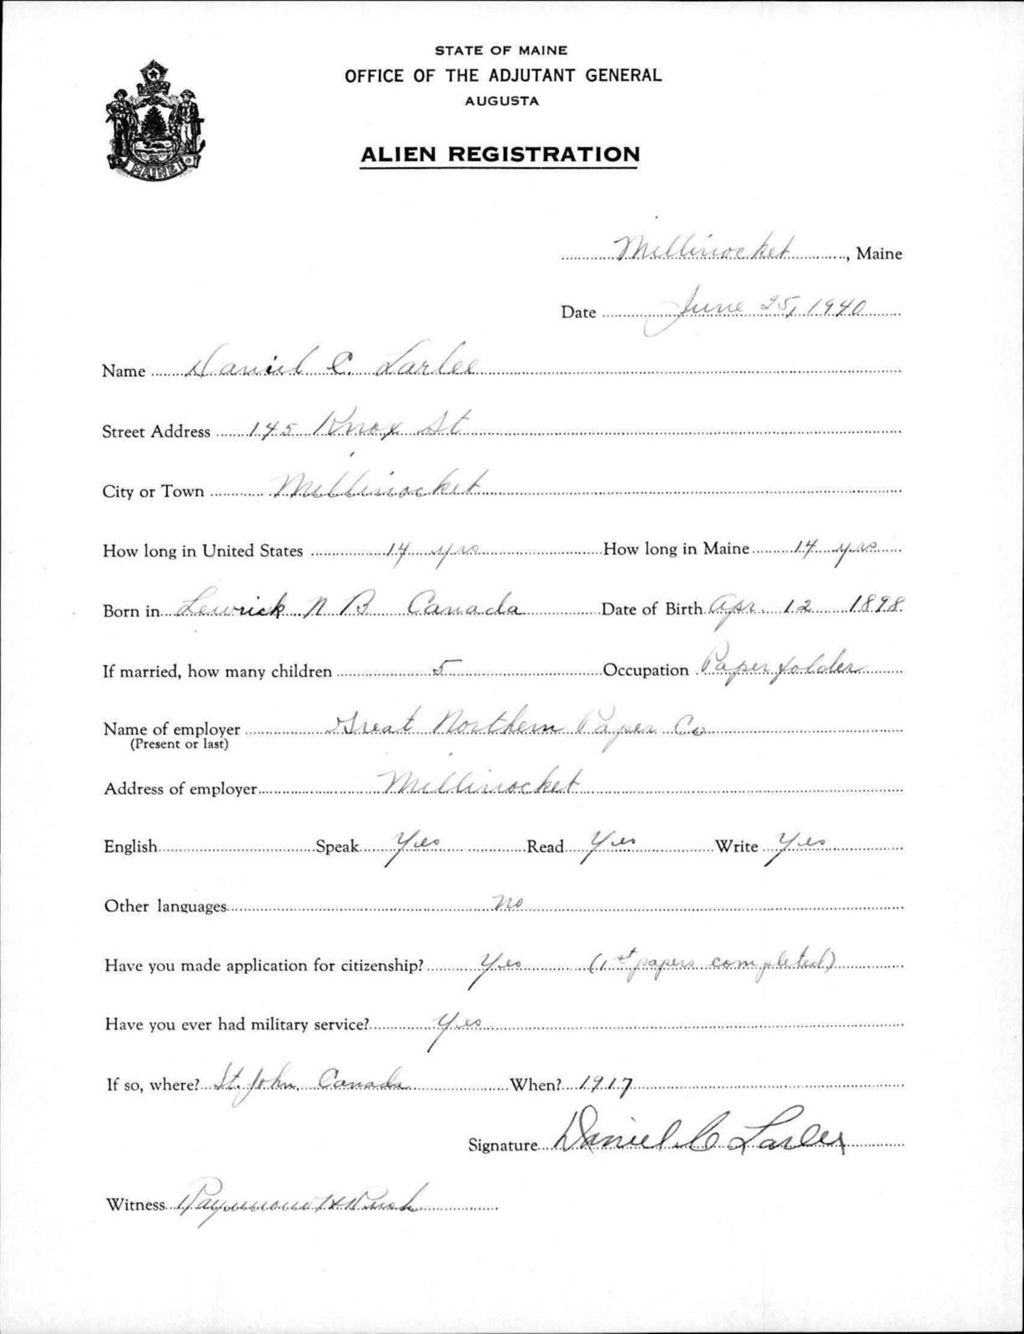 STATE OF MAINE
OFFICE OF THE ADJUTANT GENERAL
AUGUSTA
MAINE
ALIEN REGISTRATION
Millinocket, Maine
Date June 25, 1940
Name Daniel C. Larlee
Street Address 145 Knox St
City or Town Millinocket
How long in United States 14 yrs How long in Maine 14 yrs
Born in N B Canada Date of Birth Apr. 12 1898
If married, how many children 5 Occupation Paper folder
Name of employer Great Northern Paper Co
(Present or last)
Address of employer Millinocket
English Speak Yes Read Yes Write Yes
Other languages no
Have you made application for citizenship? Yes (1st papers completed)
Have you ever had military service? Yes
If so, where? St. John. Canada When? 1917
Signature Daniel C Larlee
Witness Raymond